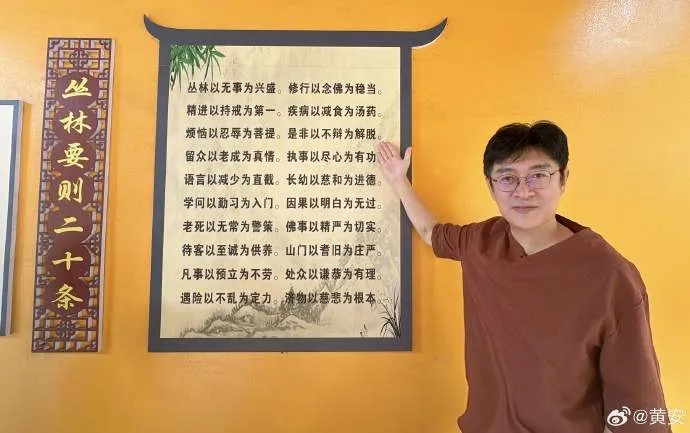 丛林要则二十条
丛林以无事为兴盛。修行以念佛为稳当。
精进以持戒为第一。疾病以减食为汤药。
烦恼以忍辱为菩提。是非以不辩为解脱。
留众以老成为真情。执事以尽心为有功
语言以减少为直截。长幼以慈和为进德。
学问以勤习为入门。因果以明白为无过。
老死以无常为警策。佛事以精严为切实。
待客以至诚为供养。山门以耆旧为庄严。
凡事以预立为不劳。处众以谦恭为有理。
遇险以不乱为定力。济物以慈悲为根本
@黄安